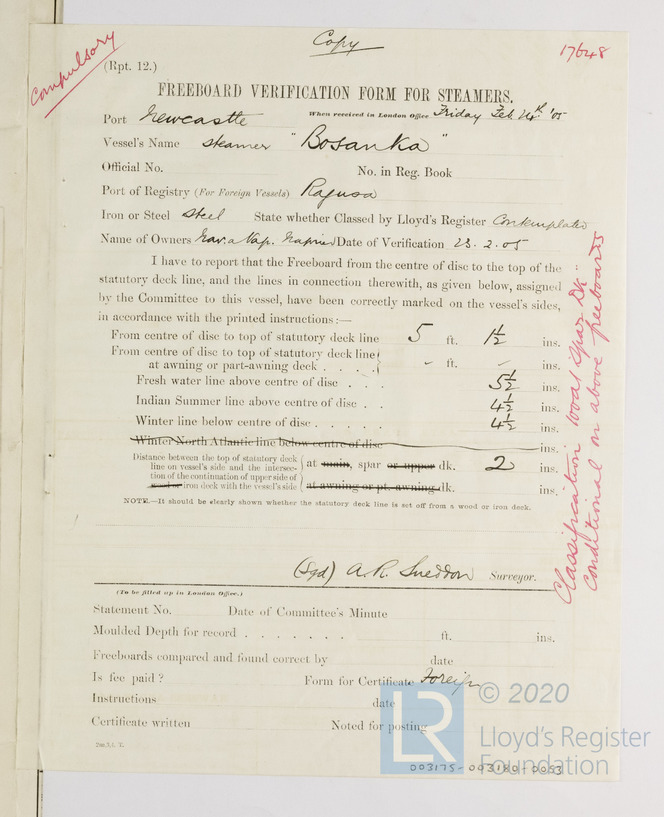 Copy
17648
Compulsory
(Rpt. 12.)
FREEBOARD VERIFICATION FORM FOR STEAMERS.
Port Newcastle When received in London Office Friday Feb 24th '05
Vessel's Name Steamer "Bosanka"
Official No. No. in Reg. Book
Port of Registry (For Foreign Vessels) Ragusa
Iron or Steel Steel State whether Classed by Lloyd's Register Contemplated
Name of Owners Nav. a Vap. Napried Date of Verification 23.2.05
I have to report that the Freeboard from the centre of disc to the top of the
statutory deck line, and the lines in connection therewith, as given below, assigned
by the Committee to this vessel, have been correctly marked on the vessel's sides,
in accordance with the printed instructions:—
From centre of disc to top of statutory deck line 5 ft. 1½ ins.
From centre of disc to top of statutory deck line
at awning or part-awning deck . . . . - ft. - ins.
Fresh water line above centre of disc . . . 5½ ins.
Indian Summer line above centre of disc . . 4½ ins.
Winter line below centre of disc . . . . . 4½ ins.
Winter North Atlantic line below centre of disc ins.
Distance between the top of statutory deck
line on vessel's side and the intersec-
tion of the continuation of upper side of
wood or iron deck with the vessel's side
at main, spar or upper dk. 2 ins.
at awning or pt. awning dk. ins.
NOTE.—It should be clearly shown whether the statutory deck line is set off from a wood or iron deck.
Classification 100A1 Spar Dk:
Conditional on above freeboards
(Sgd) A. R. Sneddon Surveyor.
(To be filled up in London Office.)
Statement No. Date of Committee's Minute
Moulded Depth for record . . . . . . . ft. ins.
Freeboards compared and found correct by date
Is fee paid? Form for Certificate Foreign
Instructions date
Certificate written Noted for posting
LR
© 2020
Lloyd's Register
Foundation
003175-003180-0053